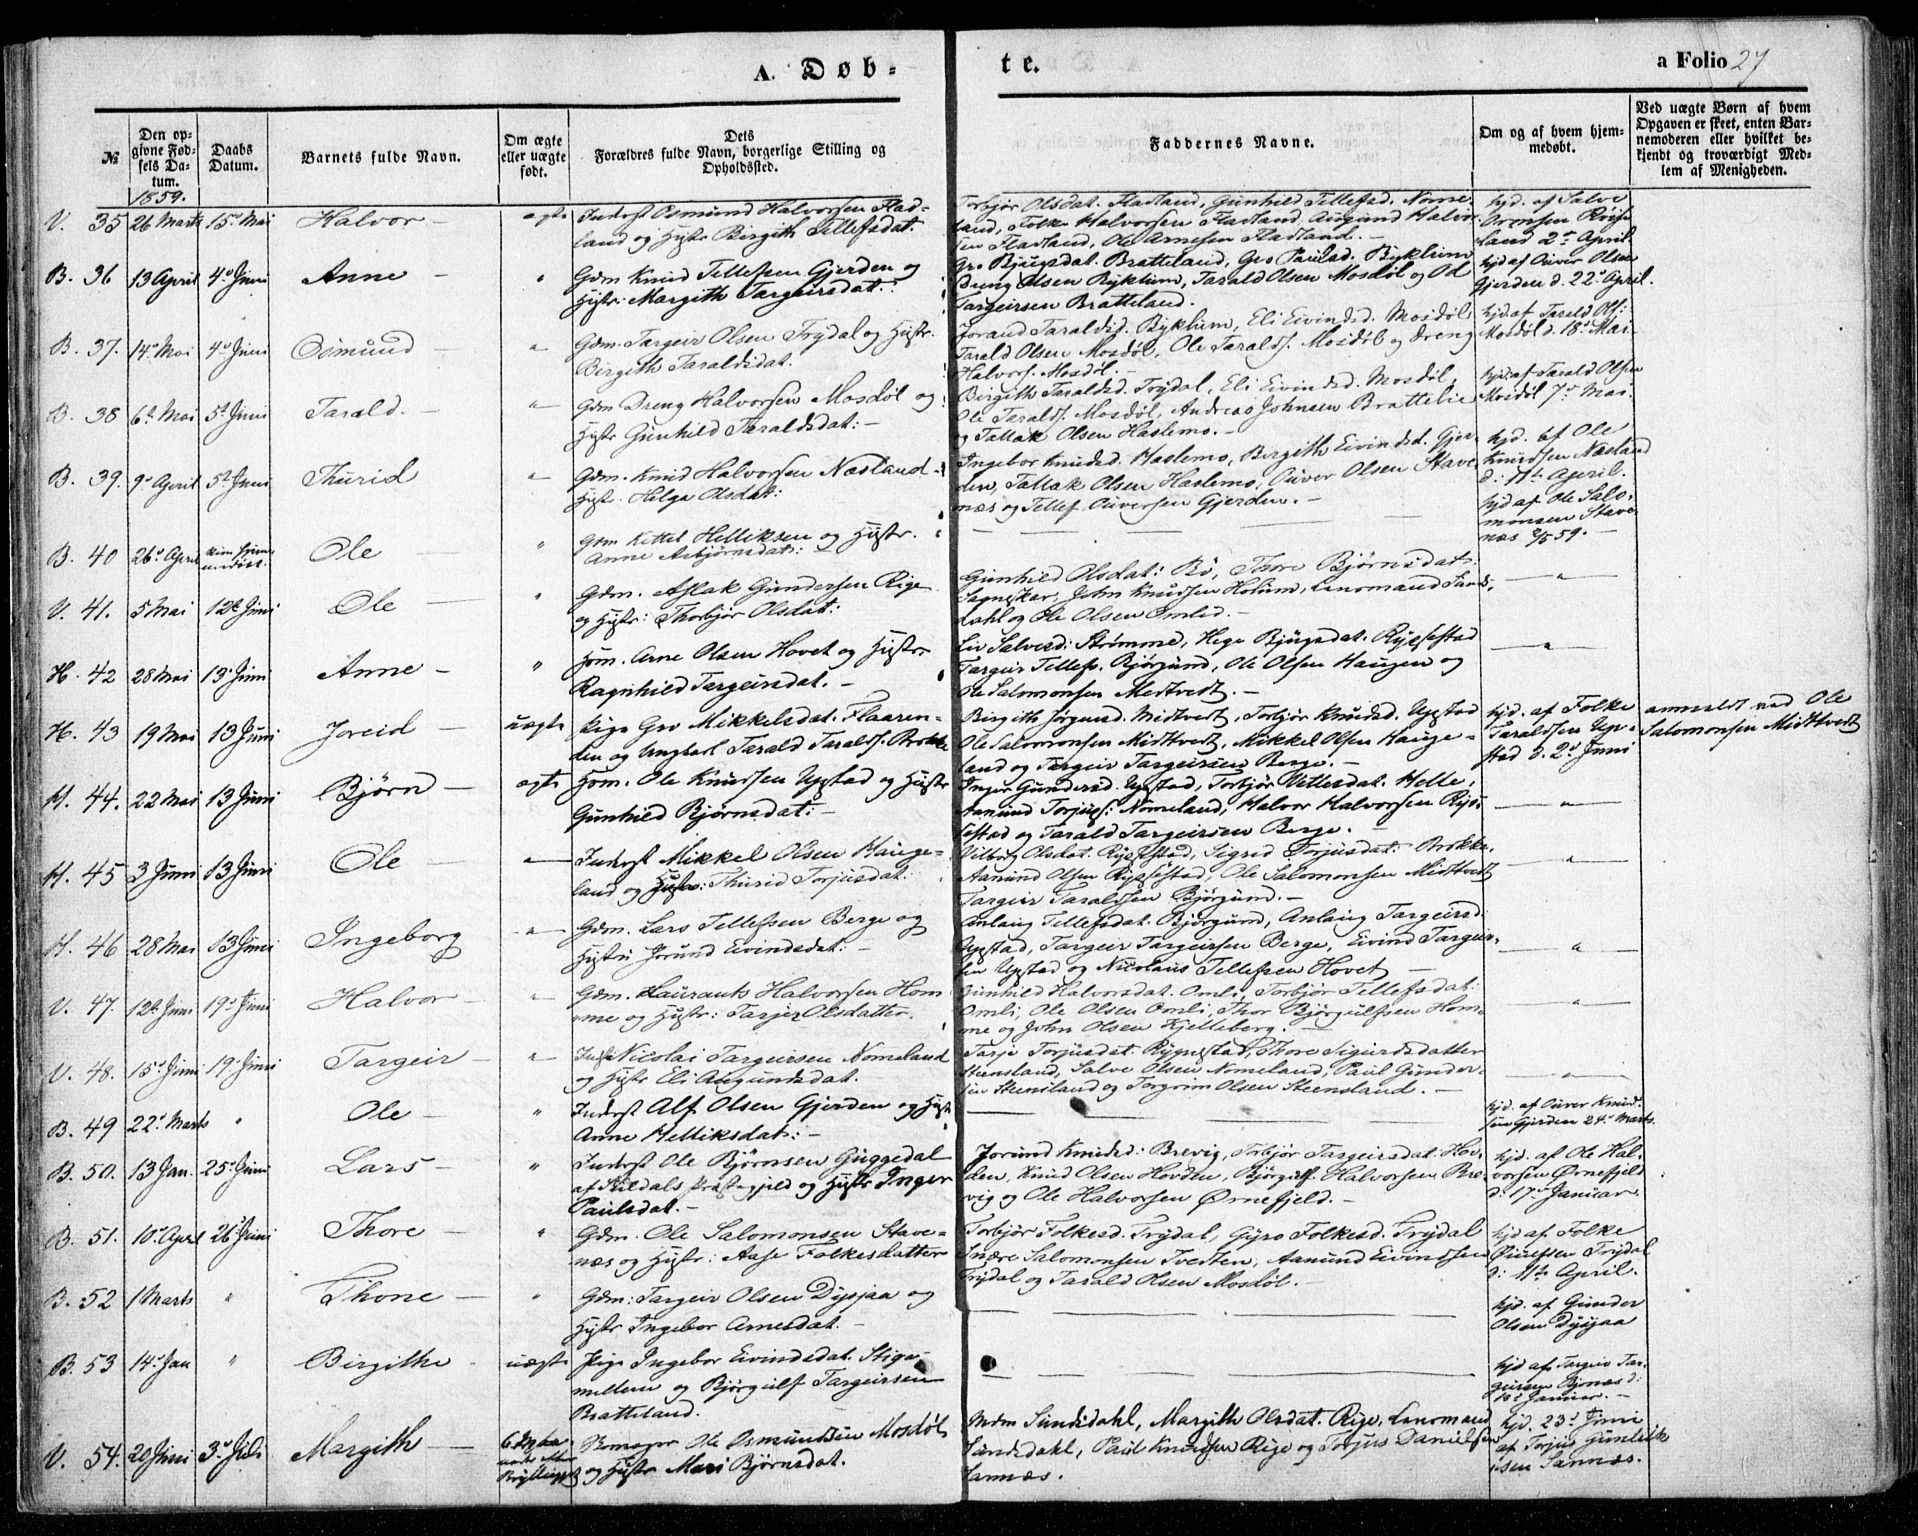 A. Døb-
te.
a Folio 27
№
Den op-
givne Fød-
sels Da-
tum.
Daabs
Datum.
Barnets fulde Navn.
Om ægte
eller uægte
født.
Dets
Forældres fulde Navn, borgerlige Stilling og
Opholdssted.
Faddernes Navne.
Om og af hvem hjem-
medøbt.
Ved uægte Børn af hvem
Opgaven er skeet, enten Bar-
nemoderen eller hvilket be-
kjendt og troværdigt Med-
lem af Menigheden.
1859.
V. 35 26 Marts 15 Mai Halvor - ægte Inderst Osmund Halvorsen Flad-
land og Hustr Birgith Tellefsdat.
Torbjør Olsdat. Fladland, Gunhild Tellefsd. Nome-
land, Folke Halvorsen Fladland, Augund Halvor-
sen Fladland, Ole Arnesen Fladland. -
hjd. af Salve
land 2den April.
B. 36 13 April 4de Juni Anne - " Gdm Knud Tellefsen Gjerden og
Hustr: Margith Targeirsdat.
Gro Bjugsdat. Bratteland, Gro Paulsd. Byklum
Dreng Olsen Byklum, Tarald Olsen Mosdøl og Od
Targeirsen Bratteland.
hjd af Ouver Olsen
Gjerden d. 22de April.
B. 37. 14 Mai 4de Juni Osmund - " Gdm. Targeir Olsen Trydal og Hustr.
Birgith Taraldsdat.
Jorand Taraldsd. Byklum, Eli Eivindsd. Mosdøl
Tarald Olsen Mosdøl, Ole Taralds. Mosdøl og Dreng
Halvors. Mosdøl. -
hjd. af Tarald Ols:
Mosdøl d. 18de Mai
B. 38 6te Mai 5te Juni Tarald. - " Gdm Dreng Halvorsen Mosdøl og
Hustr Gunhild Taraldsdat: -
Birgith Taraldsd. Trydal, Eli Eivindsd. Mosdøl,
Ole Taralds. Mosdøl, Andreas Johnsen Brattelie
og Tallak Olsen Haslemo. -
hjd. af Tarald Olsen
Mosdøl 7de Mai
B. 39. 9de April 5te Juni Thurid " Gdm. Knud Halvorsen Næsland -
Hustr. Helga Olsdat:
Ingebor Knudsd. Haslemo, Birgith Eivindsd. Gjer-
den, Tallak Olsen Haslemo, Ouver Olsen Stave-
næs og Tellef Ouversen Gjerden. -
hjd. af Ole
Knudsen Næsland
d: 11te April.
B. 40 26de April kun hjem-
medøbt. Ole - " Gdm Kettel Helliksen og Hustr.
Anne Asbjørnsdat:
hjd af Ole Salo-
monsen Stave-
næs 59. -
V. 41. 5 Mai 12te Juni Ole - " Gdm. Aslak Gundersen Rige
og Hustr: Thorbjør Olsdat:
Gunhild Olsdat: Bø, Thore Bjørnsdat:
John Knudsen Holum, Lensmand Sunds-
dahl og Ole Olsen Omlid. -
H. 42 28 Mai 13 Juni Anne - " Hom. Arne Olsen Hovet og Hustr
Ragnhild Targeirsdat. -
Liv Salvesd: Strømme, Hege Bjugsdat. Rysstad
Targeir Tellefs. Bjørgund, Ole Olsen Haugen og
Ole Salomonsen Midtvedt. -
H. 43 19 Mai 13 Juni Joreid - uægte Pige Gro Mikkelsdat. Flaaren-
den og Ungkarl Tarald Taralds. Brokke
Birgith Jørgensd. Midtvedt, Torbjør Knudsd. Upstad
Ole Salomonsen Midtvedt, Mikkel Olsen Hauge-
land og Targeir Targeirsen Berge. -
hjd. af Folke
Taraldsen Up-
stad d. 2den Juni
anmeldt ved Ole
Salomonsen Midtvedt
H. 44. 22 Mai 13 Juni Bjørn - ægte Hom. Ole Knudsen Upstad og Hustr
Gunhild Bjørnsdat: -
Inger Gundersd. Upstad, Torbjør Vettersdat. Helle,
Aamund Torjus: Nomeland, Halvor Halvorsen Rys-
sestad og Tarald Targeirsen Berge. -
H. 45 3 Juni 13 Juni Ole - Inderst Mikkel Olsen Hauge-
land og Hustr: Thurid Torjusdat:
Vilborg Olsdat. Rysstad, Sigrid Torjusdat: Brokke,
Aamund Olsen Rysstad, Ole Salomonsen Midtvedt
Targeir Taraldsen Bjørgund. -
H. 46 28 Mai 13 Juni Ingeborg " Gdm. Lars Tellefsen Berge og
Hustr: Jorund Eivindsdat: -
Anlaug Tellefsdat. Bjørgund, Anlaug Targeirsd:
Upstad, Targeir Targeirsen Berge, Eivind Targeir-
sen Upstad og Nicolaus Tellefsen Hovet -
V. 47. 12te Juni 19de Juni Halvor - " Gdm. Laurants Halvorsen Hom
me og Hustr: Tarjer Olsdatter.
Gunhild Halvorsdat. Omli, Torbjør Tellefsdat:
Omli, Ole Olsen Omli, Thor Bjørgulfsen Hom-
me og John Olsen Kjelleberg. -
V. 48. 15de Juni 19de Juni Targeir - " Inds Nicolai Targeirsen Nomeland
og Hustr Eli Augundsdat.
Tarje Torjusdat. Rygnestad, Thore Sigurdsdatter
Steensland, Salve Olsen Nomeland, Paul Gunder-
sen Steensland og Torgrim Olsen Steensland. -
B. 49 22de Marts " Ole - " Inderst Alf Olsen Gjerden og Hustr
Anne Helliksdat: -
hjd. af Ouver Knud-
sen Gjerden 24de Marts.
B. 50. 13 Jan. 25de Juni Lars - " Inderst Ole Bjørnsen Guggedal
af Suldals Præstegjeld og Hustr Inger
Paulsdat. -
Jorund Knudsd: Brevig, Torbjør Targeirsdat: Hov-
den, Knud Olsen Hovden, Bjørgulf Halvorsen Bre-
vig og Ole Halvorsen Ørnefjeld. -
hjd. af Ole Hal-
vorsen Ørnefjeld
d. 17de Januar.
B. 51. 10de April 26de Juni Thore - " Gdm. Ole Salomonsen Stave-
næs og Hustr: Aase Folkesdatter
Torbjør Folkesd. Trydal, Gyro Folkesd. Trydal
Snære Salomonsen Tvesten, Aamund Eivindsen
Trydal og Tarald Olsen Mosdøl. -
hjd af Folke
Trydal
d: 11te April.
B. 52 1 Marts " Thone - " Gdm: Targeir Olsen Dysjaa og
Hustr Ingebor Arnesdat. -
hjd. af Gunder
Olsen Dysjaa
B. 53 14de Jan " Birgithe - uægte Pige Ingebor Eivindsdat. Stige-
mellem og Bjørgulf Targeirsen
Bratteland.
hjd af Targeir Tar-
geirsen Bjones d:
Januar. -
V. 54. 20 Juni 3de Juli Margith - Ole Osmundsen Mosdøl
og Hustr Mari Bjørnsdat.
Mdm Sundsdahl, Margith Olsdat. Rige, Lensmand
Sundsdahl, Paul Knudsen Rige og Torjus Danielsen
Sannæs.
hjd. 23de Juni
af Torjus Gunlik
sen Sannæs.